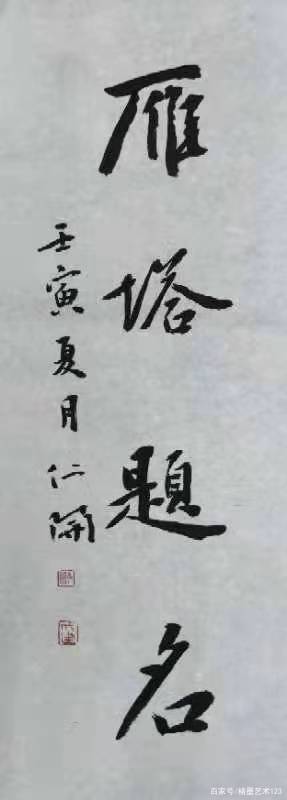 雁塔題名
壬寅夏月仁開
百家号/精墨艺术123